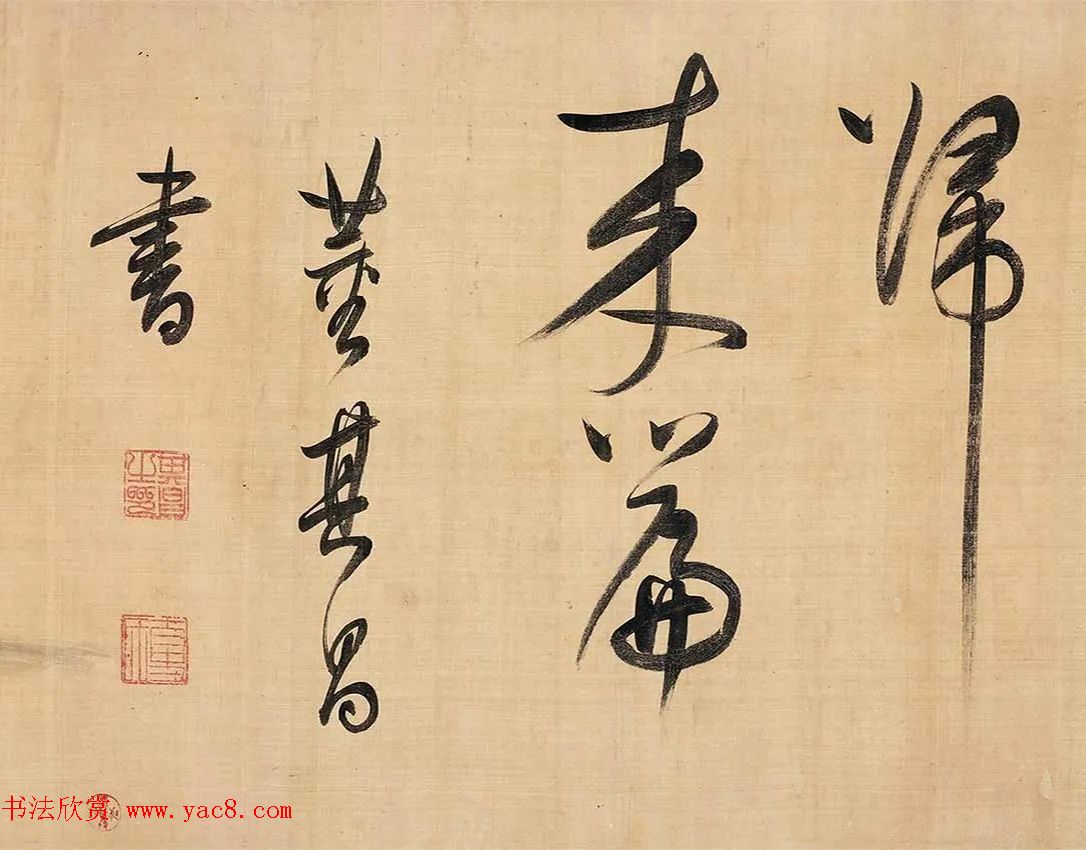 歸
來篇
董其昌
書
书法欣赏 www.yac8.com